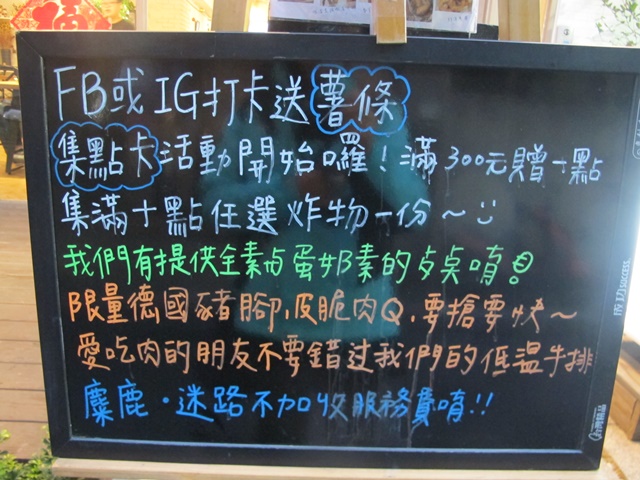 FB或IG打卡送薯條
集點卡活動開始囉!滿300元贈一點
集滿十點任選炸物一份~
我們有提供全素與蛋奶素的餐桌唷
限量德國豬腳,皮脆肉Q,要搶要快~
愛吃肉的朋友不要錯過我們的低溫牛排
麋鹿·迷路不加收服務費唷!!
成功 SUCCESS